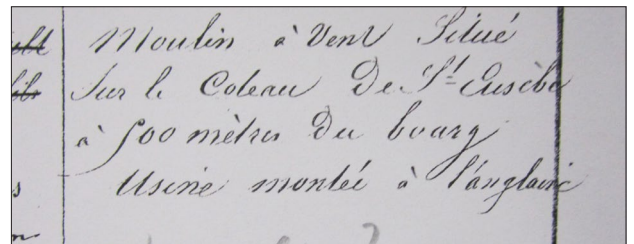 Moulin à Vent Situé
Sur le Coteau De St Eusèbe
à 500 mètres Du bourg
Usine montée à l'anglaise